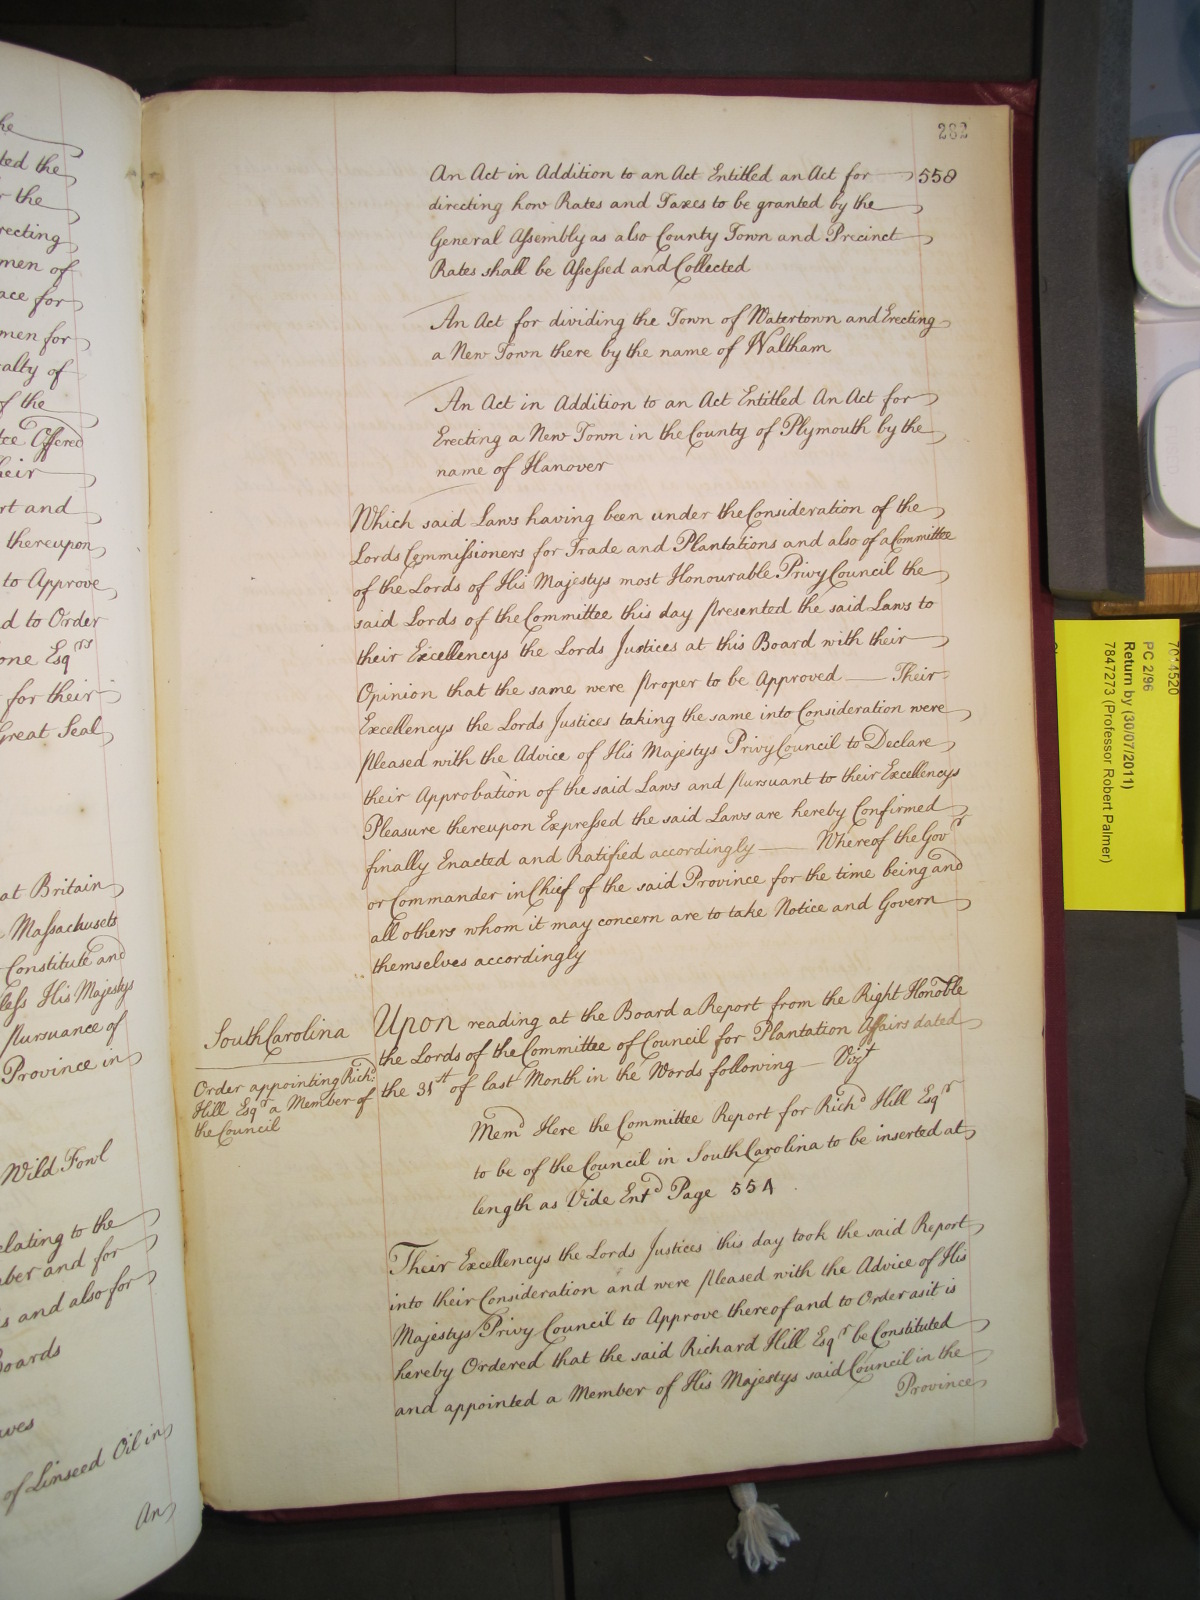 he
ted the
r the
recting
men of
ace for
men for
alty of
of the
tce Offered
heir
rt and
thereupon
to Approve
d to Order
one Esqrs
for their
Great Seal
at Britain
Massachusets
Constitute and
less His Majestys
pursuance of
Province in
Wild Fowl
elating to the
ber and for
s and also for
Boards
wes
of Linseed Oil in
An
282
558
An Act in Addition to an Act Entitled an Act for
directing how Rates and Taxes to be granted by the
General Assembly as also County Town and Precinct
Rates shall be Assessed and Collected
An Act for dividing the Town of Watertown and Erecting
a New Town there by the name of Waltham
An Act in Addition to an Act Entitled An Act for
Erecting a New Town in the County of Plymouth by the
name of Hanover
Which said Laws having been under the Consideration of the
Lords Commissioners for Trade and Plantations and also of a Committee
of the Lords of His Majestys most Honourable Privy Council the
said Lords of the Committee this day presented the said Laws to
their Excellencys the Lords Justices at this Board with their
Opinion that the same were proper to be Approved — Their
Excellencys the Lords Justices taking the same into Consideration were
pleased with the Advice of His Majestys Privy Council to Declare
their Approbation of the said Laws and pursuant to their Excellencys
Pleasure thereupon Expressed the said Laws are hereby Confirmed
finally Enacted and Ratified accordingly — Whereof the Govr
or Commander in Chief of the said Province for the time being and
all others whom it may concern are to take Notice and Govern
themselves accordingly
South Carolina
Order appointing Richd
Hill Esqr a Member of
the Council
Upon reading at the Board a Report from the Right Honoble
the Lords of the Committee of Council for Plantation Affairs dated
the 31st of last Month in the Words following — Vizt
Memd Here the Committee Report for Richd Hill Esqr
to be of the Council in South Carolina to be inserted at
length as Vide Entd Page 554
Their Excellencys the Lords Justices this day took the said Report
into their Consideration and were pleased with the Advice of His
Majestys Privy Council to Approve thereof and to Order as it is
hereby Ordered that the said Richard Hill Esqr be Constituted
and appointed a Member of His Majestys said Council in the
Province
7014520
PC 2/96
Return by (30/07/2011)
7847273 (Professor Robert Palmer)